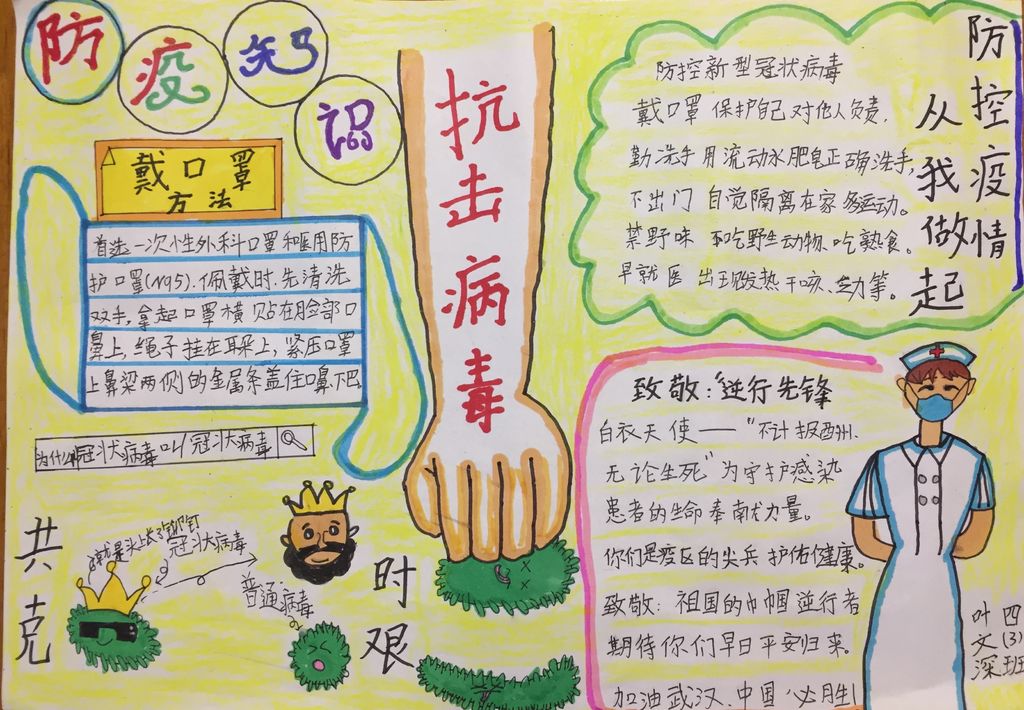 防疫知识
戴口罩
方法
首选一次性外科口罩和医用防
护口罩(N95).佩戴时.先清洗
双手,拿起口罩横贴在脸部口
鼻上,绳子挂在耳朵上,紧压口罩
上鼻梁两侧的金属条盖住口鼻下巴
为什么冠状病毒叫冠状病毒
就是头上长了钉钉
冠状病毒
普通病毒
共克
时艰
抗击病毒
防控新型冠状病毒
戴口罩 保护自己 对他人负责,
勤洗手 用流动水肥皂正确洗手,
不出门 自觉隔离在家多运动。
禁野味 不吃野生动物、吃熟食。
早就医 出现发热干咳、乏力等。
防控疫情
从我做起
致敬:"逆行先锋
白衣天使——"不计报酬.
无论生死"为守护感染
患者的生命奉献力量。
你们是疫区的尖兵 护佑健康。
致敬: 祖国的巾帼逆行者
期待你们早日平安归来。
加油武汉、中国必胜!
四(3)班
叶文深